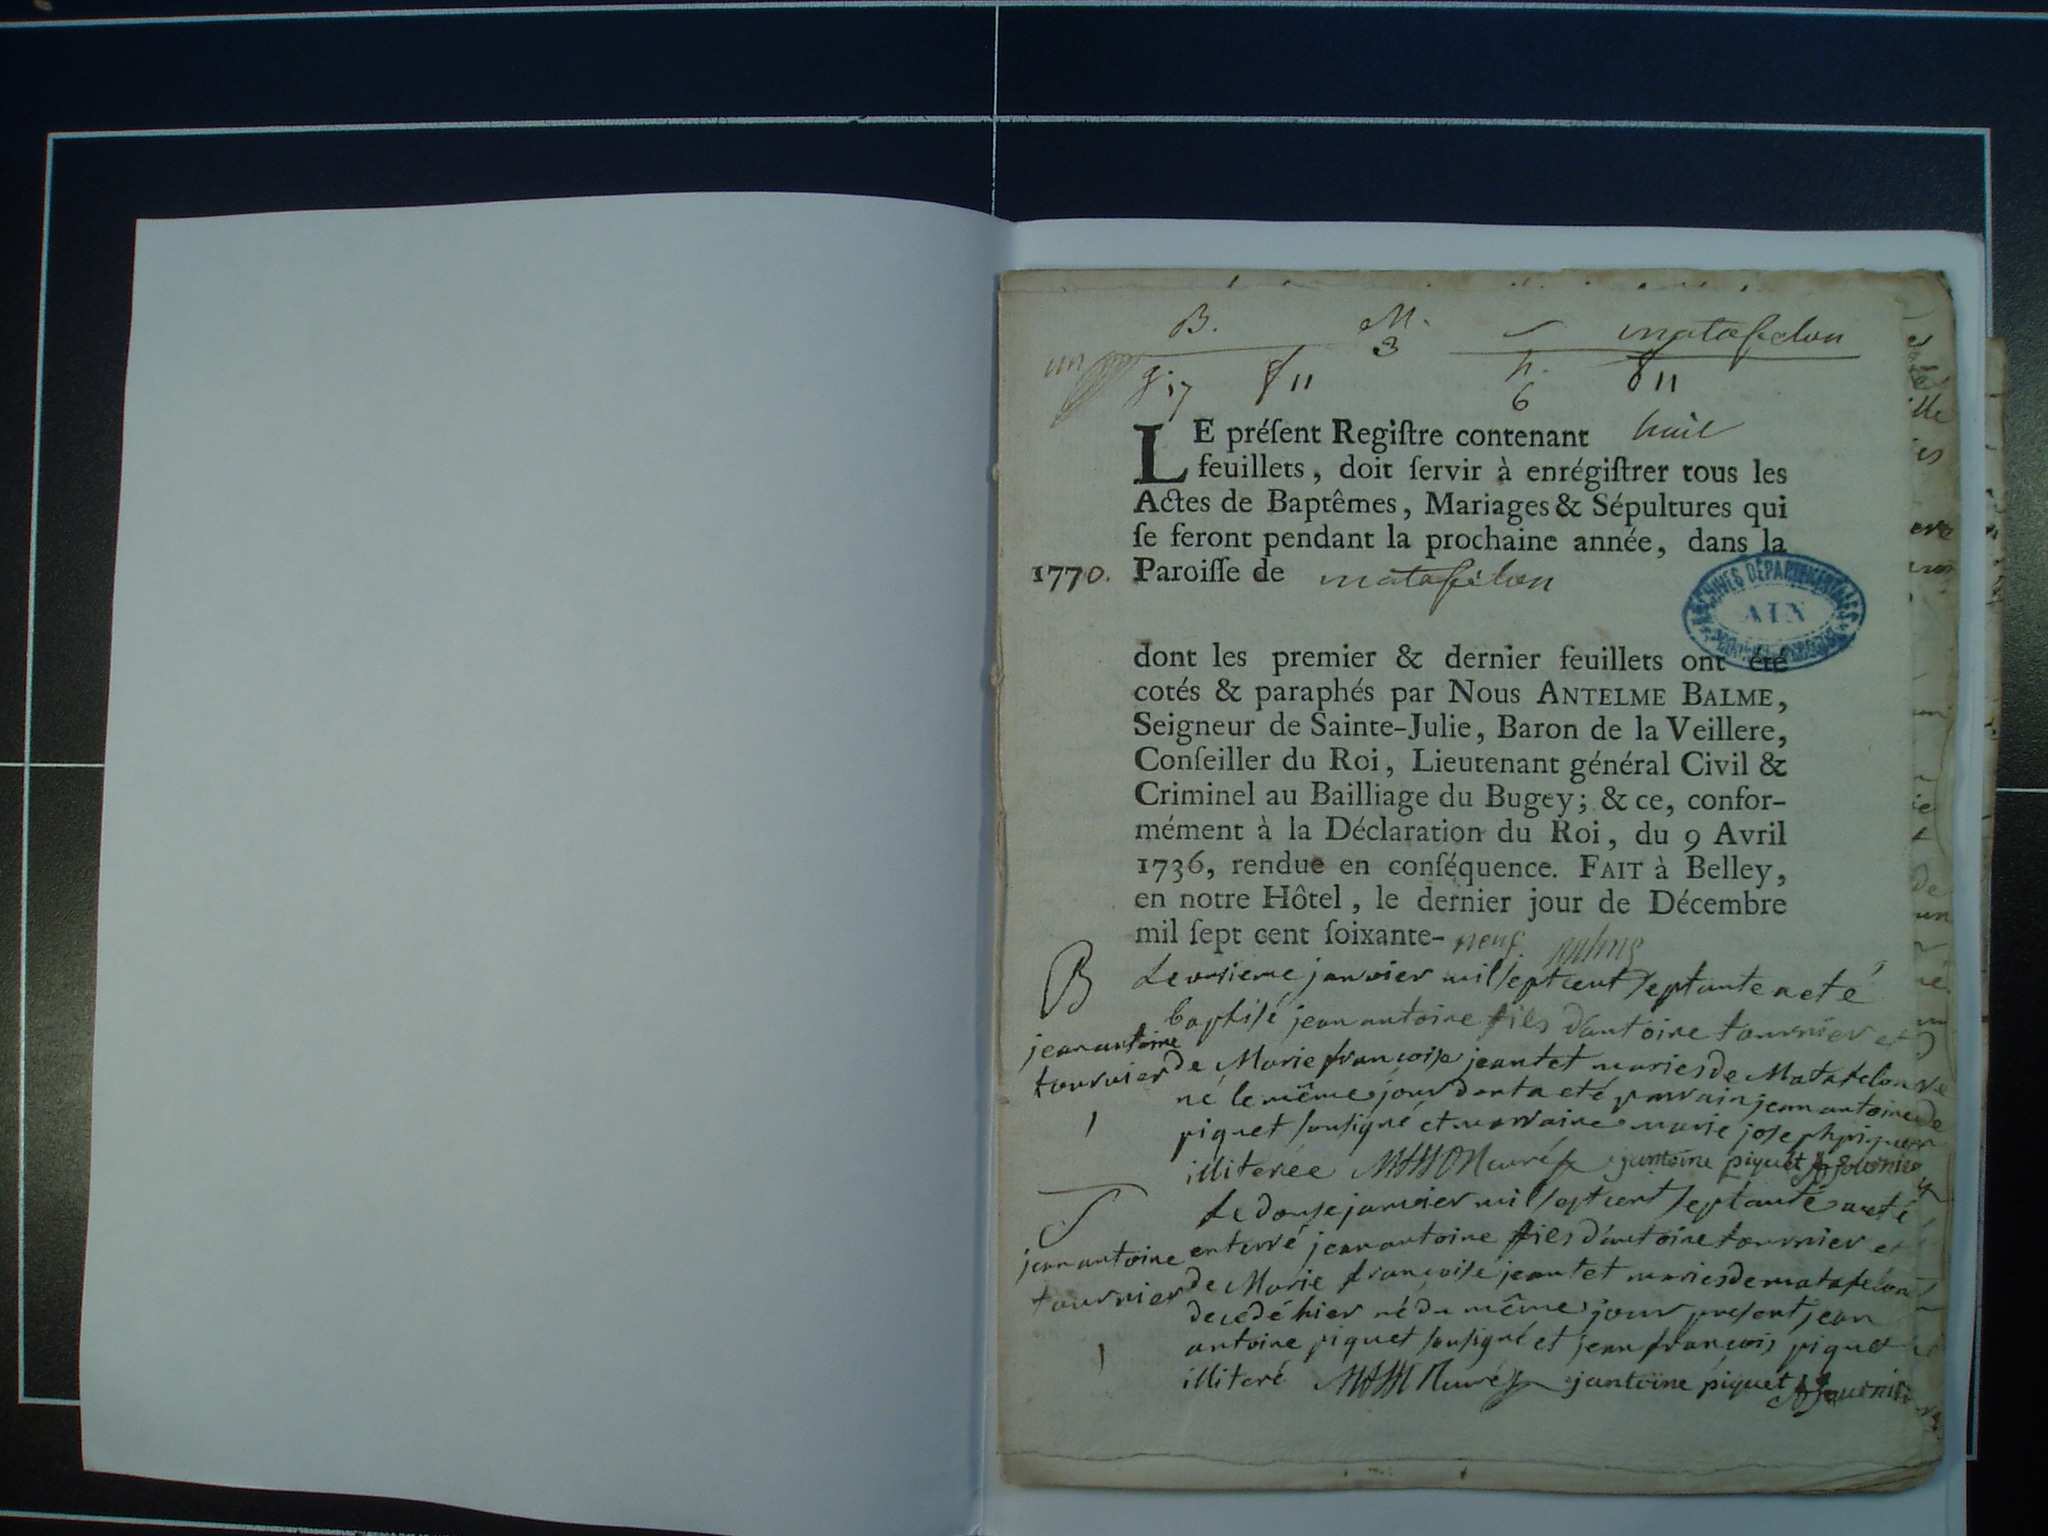 B. M. S matafelon
un g 17 f 11 3 h. 6 f 11
LE préſent Regiſtre contenant huit
feuillets, doit ſervir à enrégiſtrer tous les
Actes de Baptêmes, Mariages & Sépultures qui
ſe feront pendant la prochaine année, dans la
1770. Paroiſſe de matafelon
ARCHIVES DÉPARTEMENTALES AIN
dont les premier & dernier feuillets ont été
cotés & paraphés par Nous ANTELME BALME,
Seigneur de Sainte-Julie, Baron de la Veillere,
Conſeiller du Roi, Lieutenant général Civil &
Criminel au Bailliage du Bugey; & ce, confor-
mément à la Déclaration du Roi, du 9 Avril
1736, rendue en conſéquence. FAIT à Belley,
en notre Hôtel, le dernier jour de Décembre
mil ſept cent ſoixante- neuf Balme
B Le onsieme janvier mil sept cent septante a eté
baptisé jean antoine fils d'antoine tournier et
jean antoine
tournier de Marie françoise jeantet mariés de Matafelon
né le même jour dont a eté parrain jean antoine
1 piquet sousigné et marraine marie joseph piquet
illiterée curé jantoine piquet tournier
S Le douse janvier mil sept cent septante a eté
jean antoine enterré jean antoine fils d'antoine tournier et
tournier de Marie françoise jeantet mariés de matafelon
decedé hier né du même jour present jean
1 antoine piquet sousigné et jean françois piquet
illiteré curé jantoine piquet tournier